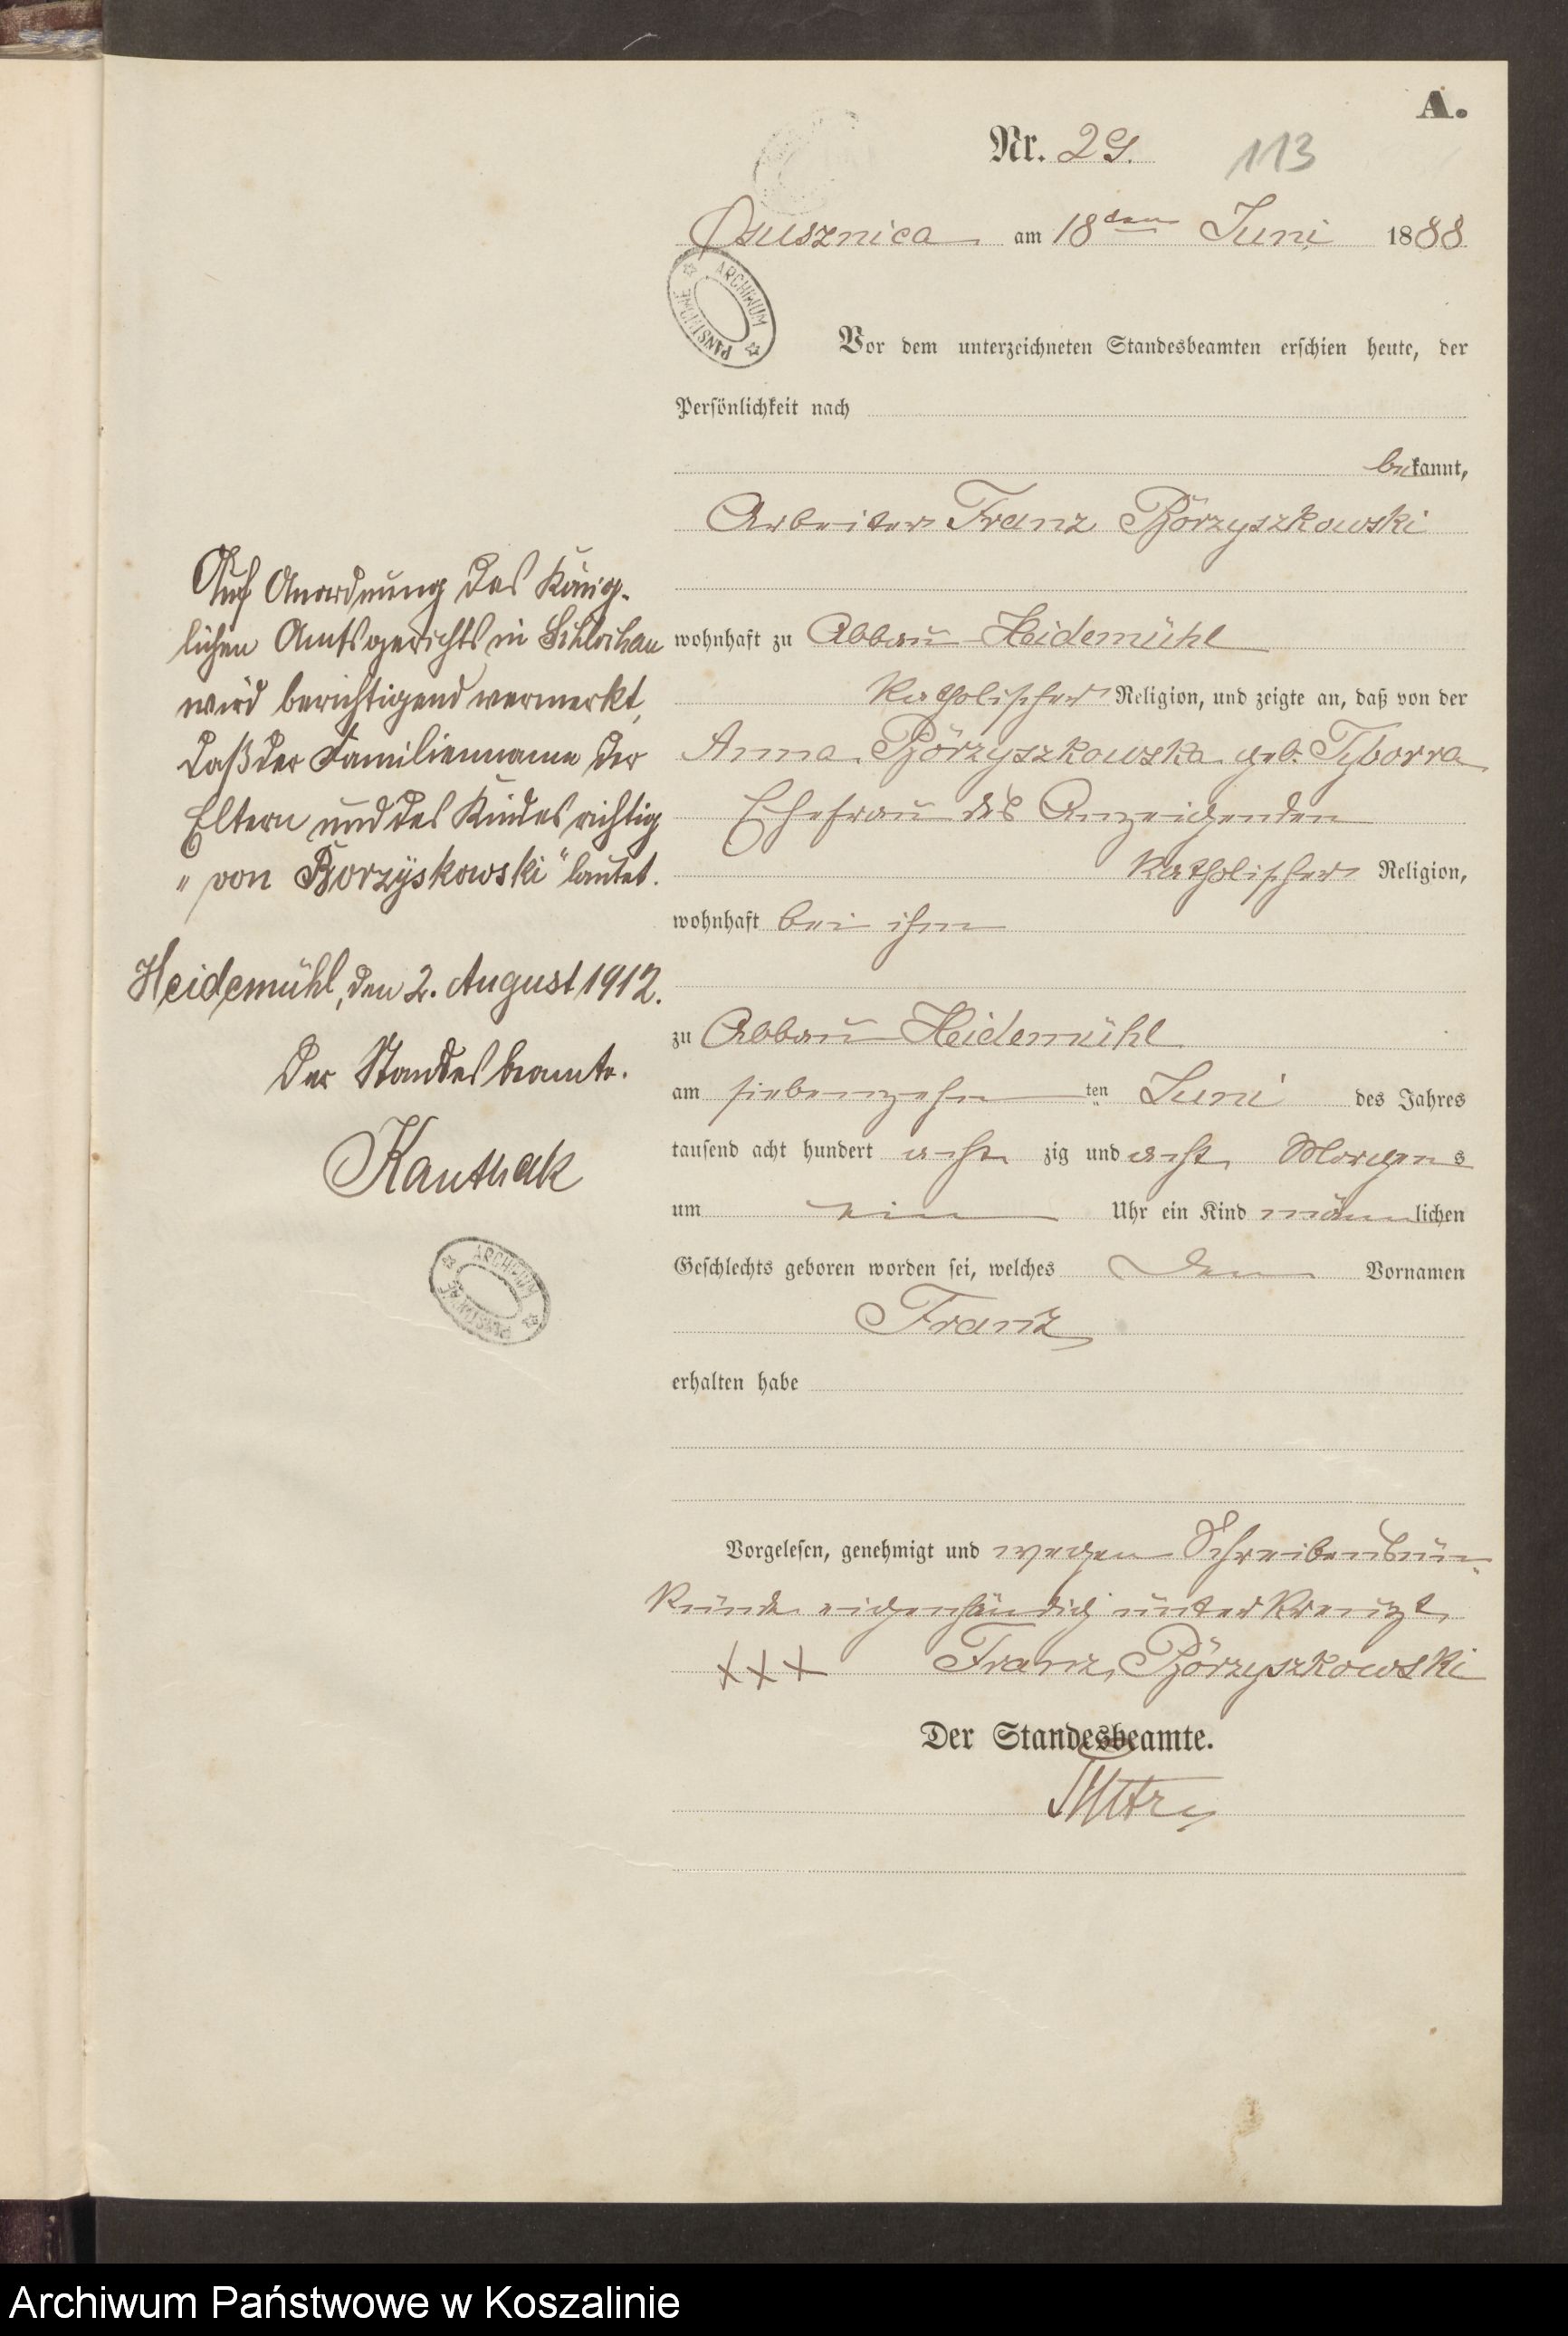 A.
Nr. 29. 113
Ossusznica am 18ten Juni 1888
ARCHIWUM PAŃSTWOWE
Vor dem unterzeichneten Standesbeamten erschien heute, der
Persönlichkeit nach
bekannt,
Arbeiter Franz Börzyszkowski
wohnhaft zu Abbau Heidemühl
katholischer Religion, und zeigte an, daß von der
Anna Börzyszkowska geb. Tyborra
Ehefrau des Anzeigenden
katholischer Religion,
wohnhaft bei ihm
zu Abbau Heidemühl
am siebenzehnten Juni des Jahres
tausend acht hundert acht zig und acht Morgens
um ein Uhr ein Kind männlichen
Geschlechts geboren worden sei, welches den Vornamen
Franz
erhalten habe
Vorgelesen, genehmigt und wegen Schreibensun-
kunde eigenhändig unterkreuzt
+++ Franz Börzyszkowski
Der Standesbeamte.
Auf Anordnung des König-
lichen Amtsgerichts in Schlochau
wird berichtigend vermerkt,
daß der Familienname der
Eltern und des Kindes richtig
"von Borzyskowski" lautet.
Heidemühl, den 2. August 1912.
Der Standesbeamte.
Kanthak
ARCHIWUM PAŃSTWOWE
Archiwum Państwowe w Koszalinie